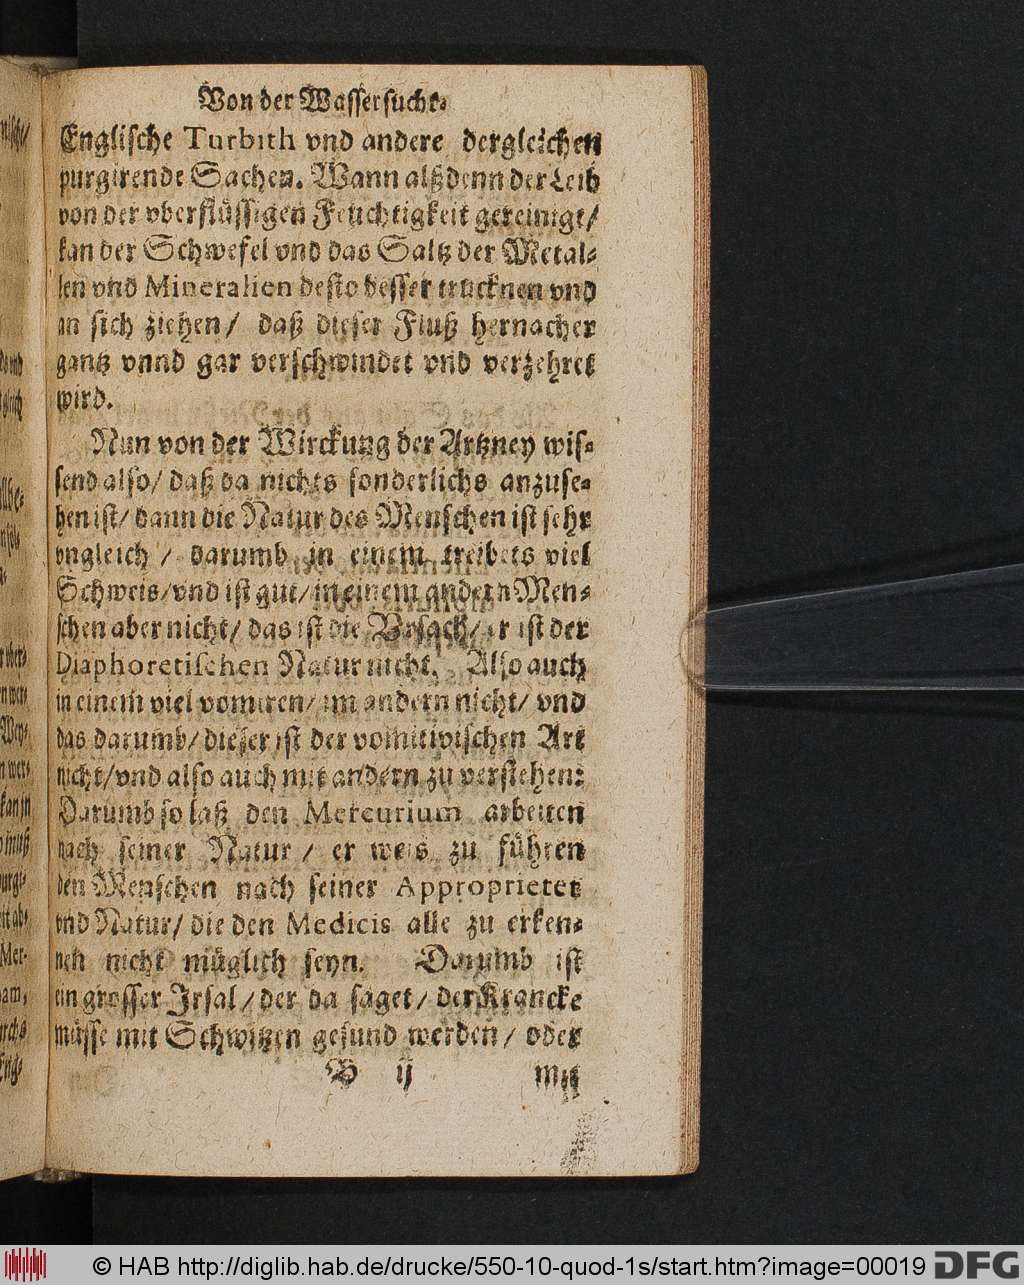 Von der Wassersucht.
Englische Turbith vnd andere dergleichen
purgirende Sachen. Wann alßdenn der Leib
von der vberflüssigen Feuchtigkeit gereinigt/
kan der Schwefel vnd das Saltz der Metal-
len vnd Mineralien desto besser trucknen vnd
an sich ziehen/ daß dieser Fluß hernacher
gantz vnnd gar verschwindet vnd verzehret
wird.
Nun von der Wirckung der Artzney wis-
send also/ daß da nichts sonderlichs anzuse-
hen ist/ dann die Natur des Menschen ist sehr
vngleich/ darumb in einem treibets viel
Schweis/ vnd ist gut/ in einem andern Men-
schen aber nicht/ das ist die Vrsach/ er ist der
Diaphoretischen Natur nicht. Also auch
in einem viel vomiren/ im andern nicht/ vnd
das darumb/ dieser ist der vomitivischen Art
nicht/ vnd also auch mit andern zu verstehen:
Darumb so laß den Mercurium arbeiten
nach seiner Natur/ er weis zu führen
den Menschen nach seiner Approprietet
vnd Natur/ die den Medicis alle zu erken-
nen nicht müglich seyn. Darumb ist
ein grosser Irsal/ der da saget/ der Krancke
müsse mit Schwitzen gesund werden/ oder
B ij mit
© HAB http://diglib.hab.de/drucke/550-10-quod-1s/start.htm?image=00019 DFG